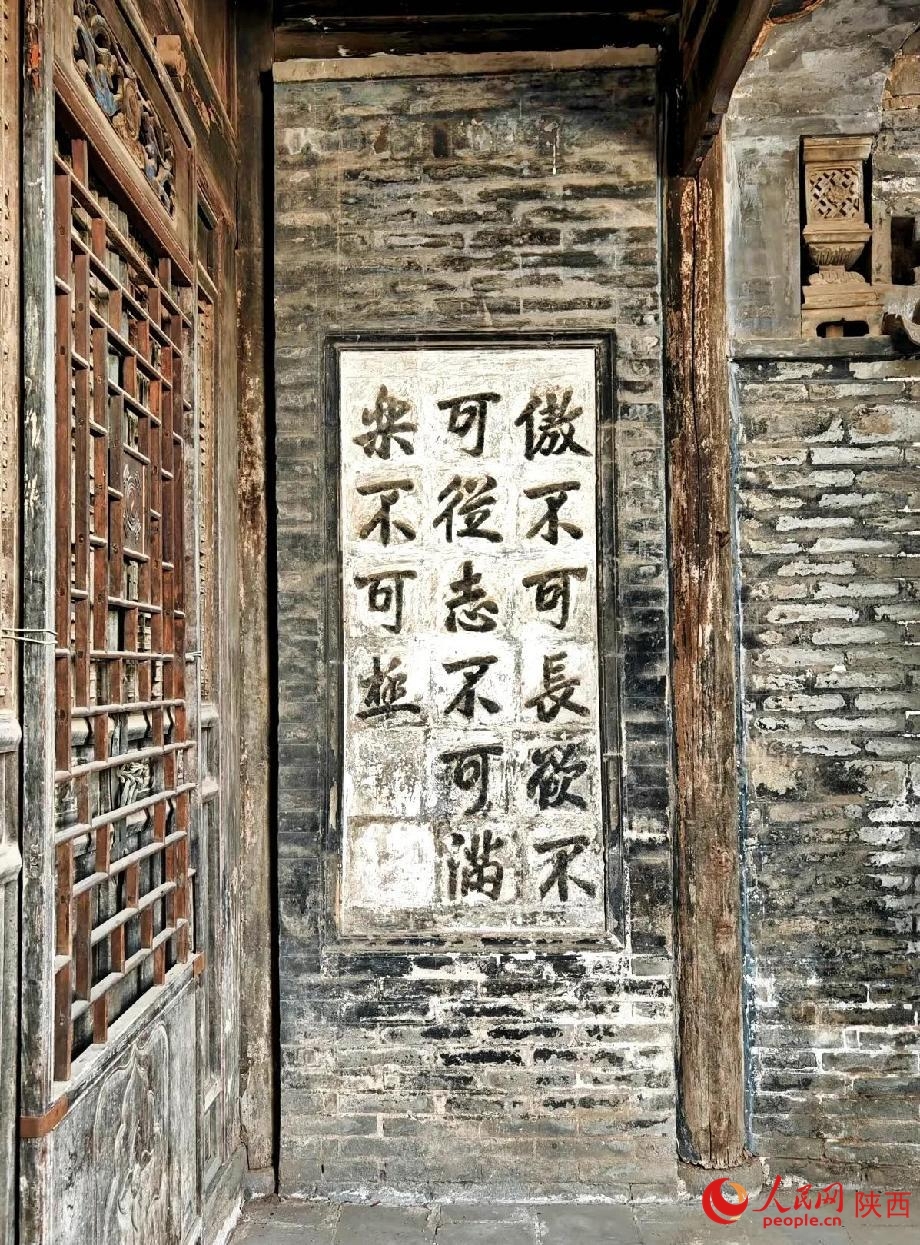 傲不可長欲不
可從志不可滿
樂不可極
人民网 陕西
people.cn